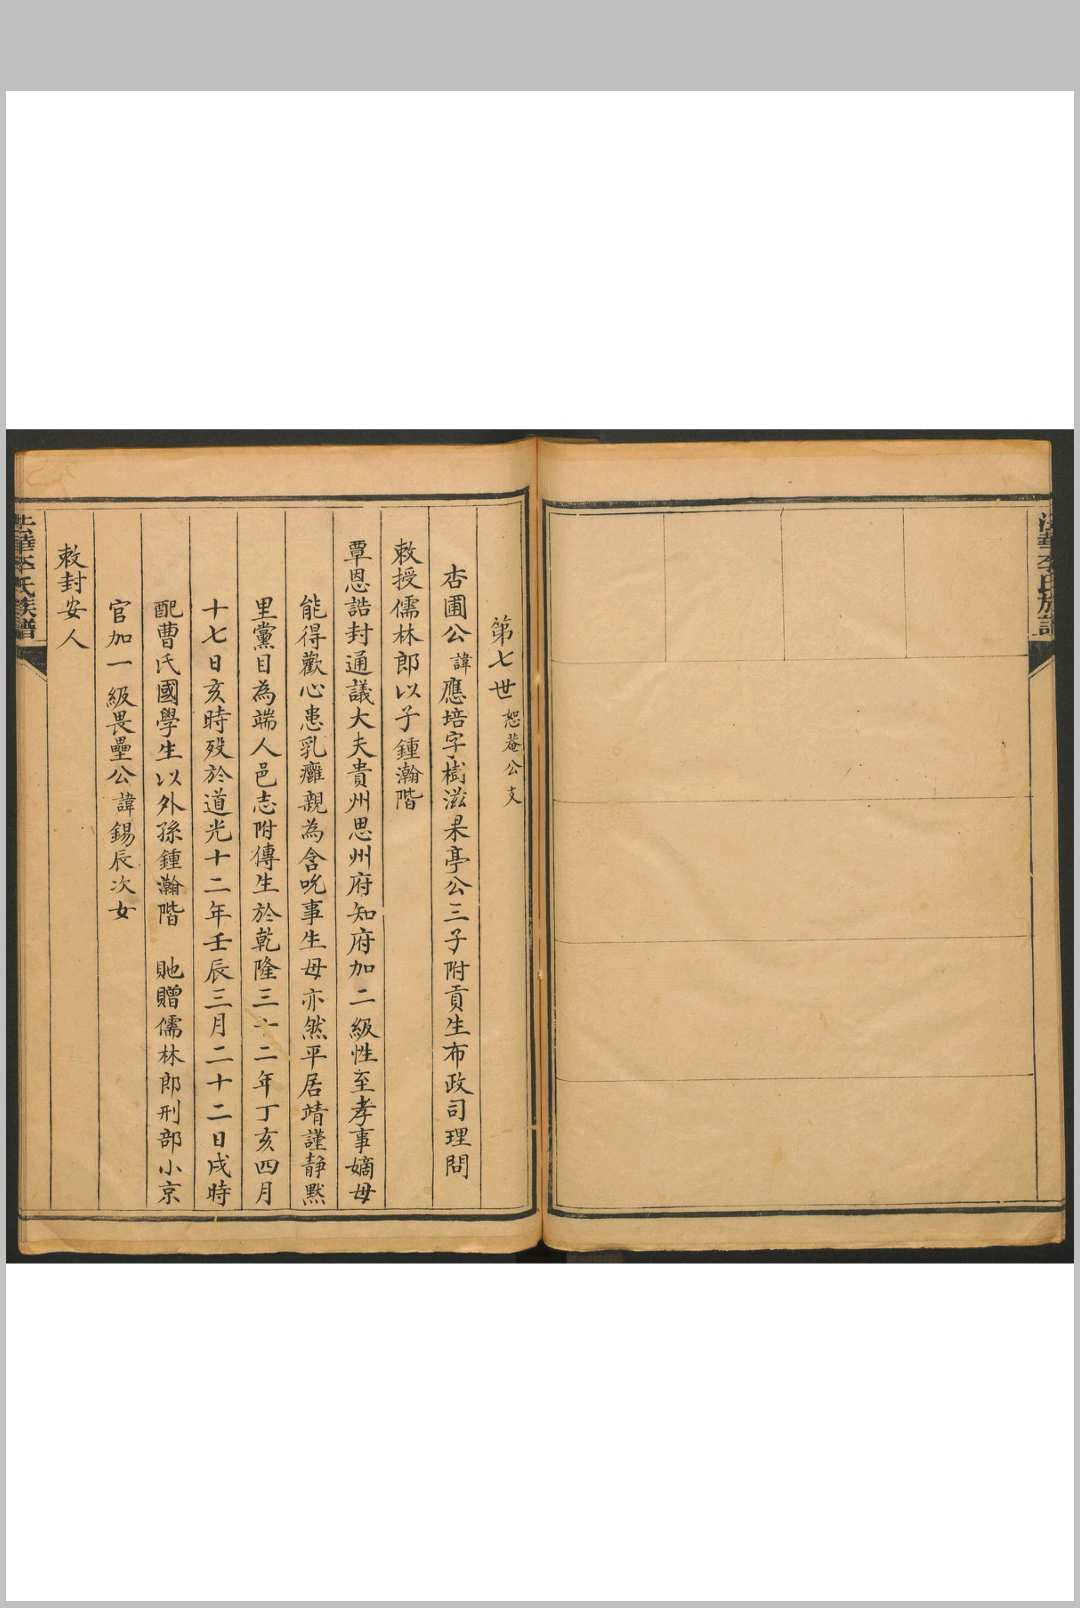 法華李氏族譜
第七世 恕菴公支
杏圃公諱應培字樹滋果亭公三子附貢生布政司理問
敕授儒林郎以子鍾瀚階
覃恩誥封通議大夫貴州思州府知府加二級性至孝事嫡母
能得歡心患乳癰親為含吮事生母亦然平居靖謹靜默
里黨目為端人邑志附傳生於乾隆三十二年丁亥四月
十七日亥時歿於道光十二年壬辰三月二十二日戌時
配曹氏國學生以外孫鍾瀚階 貤贈儒林郎刑部小京
官加一級畏壘公諱錫辰次女
敕封安人
法華李氏族譜